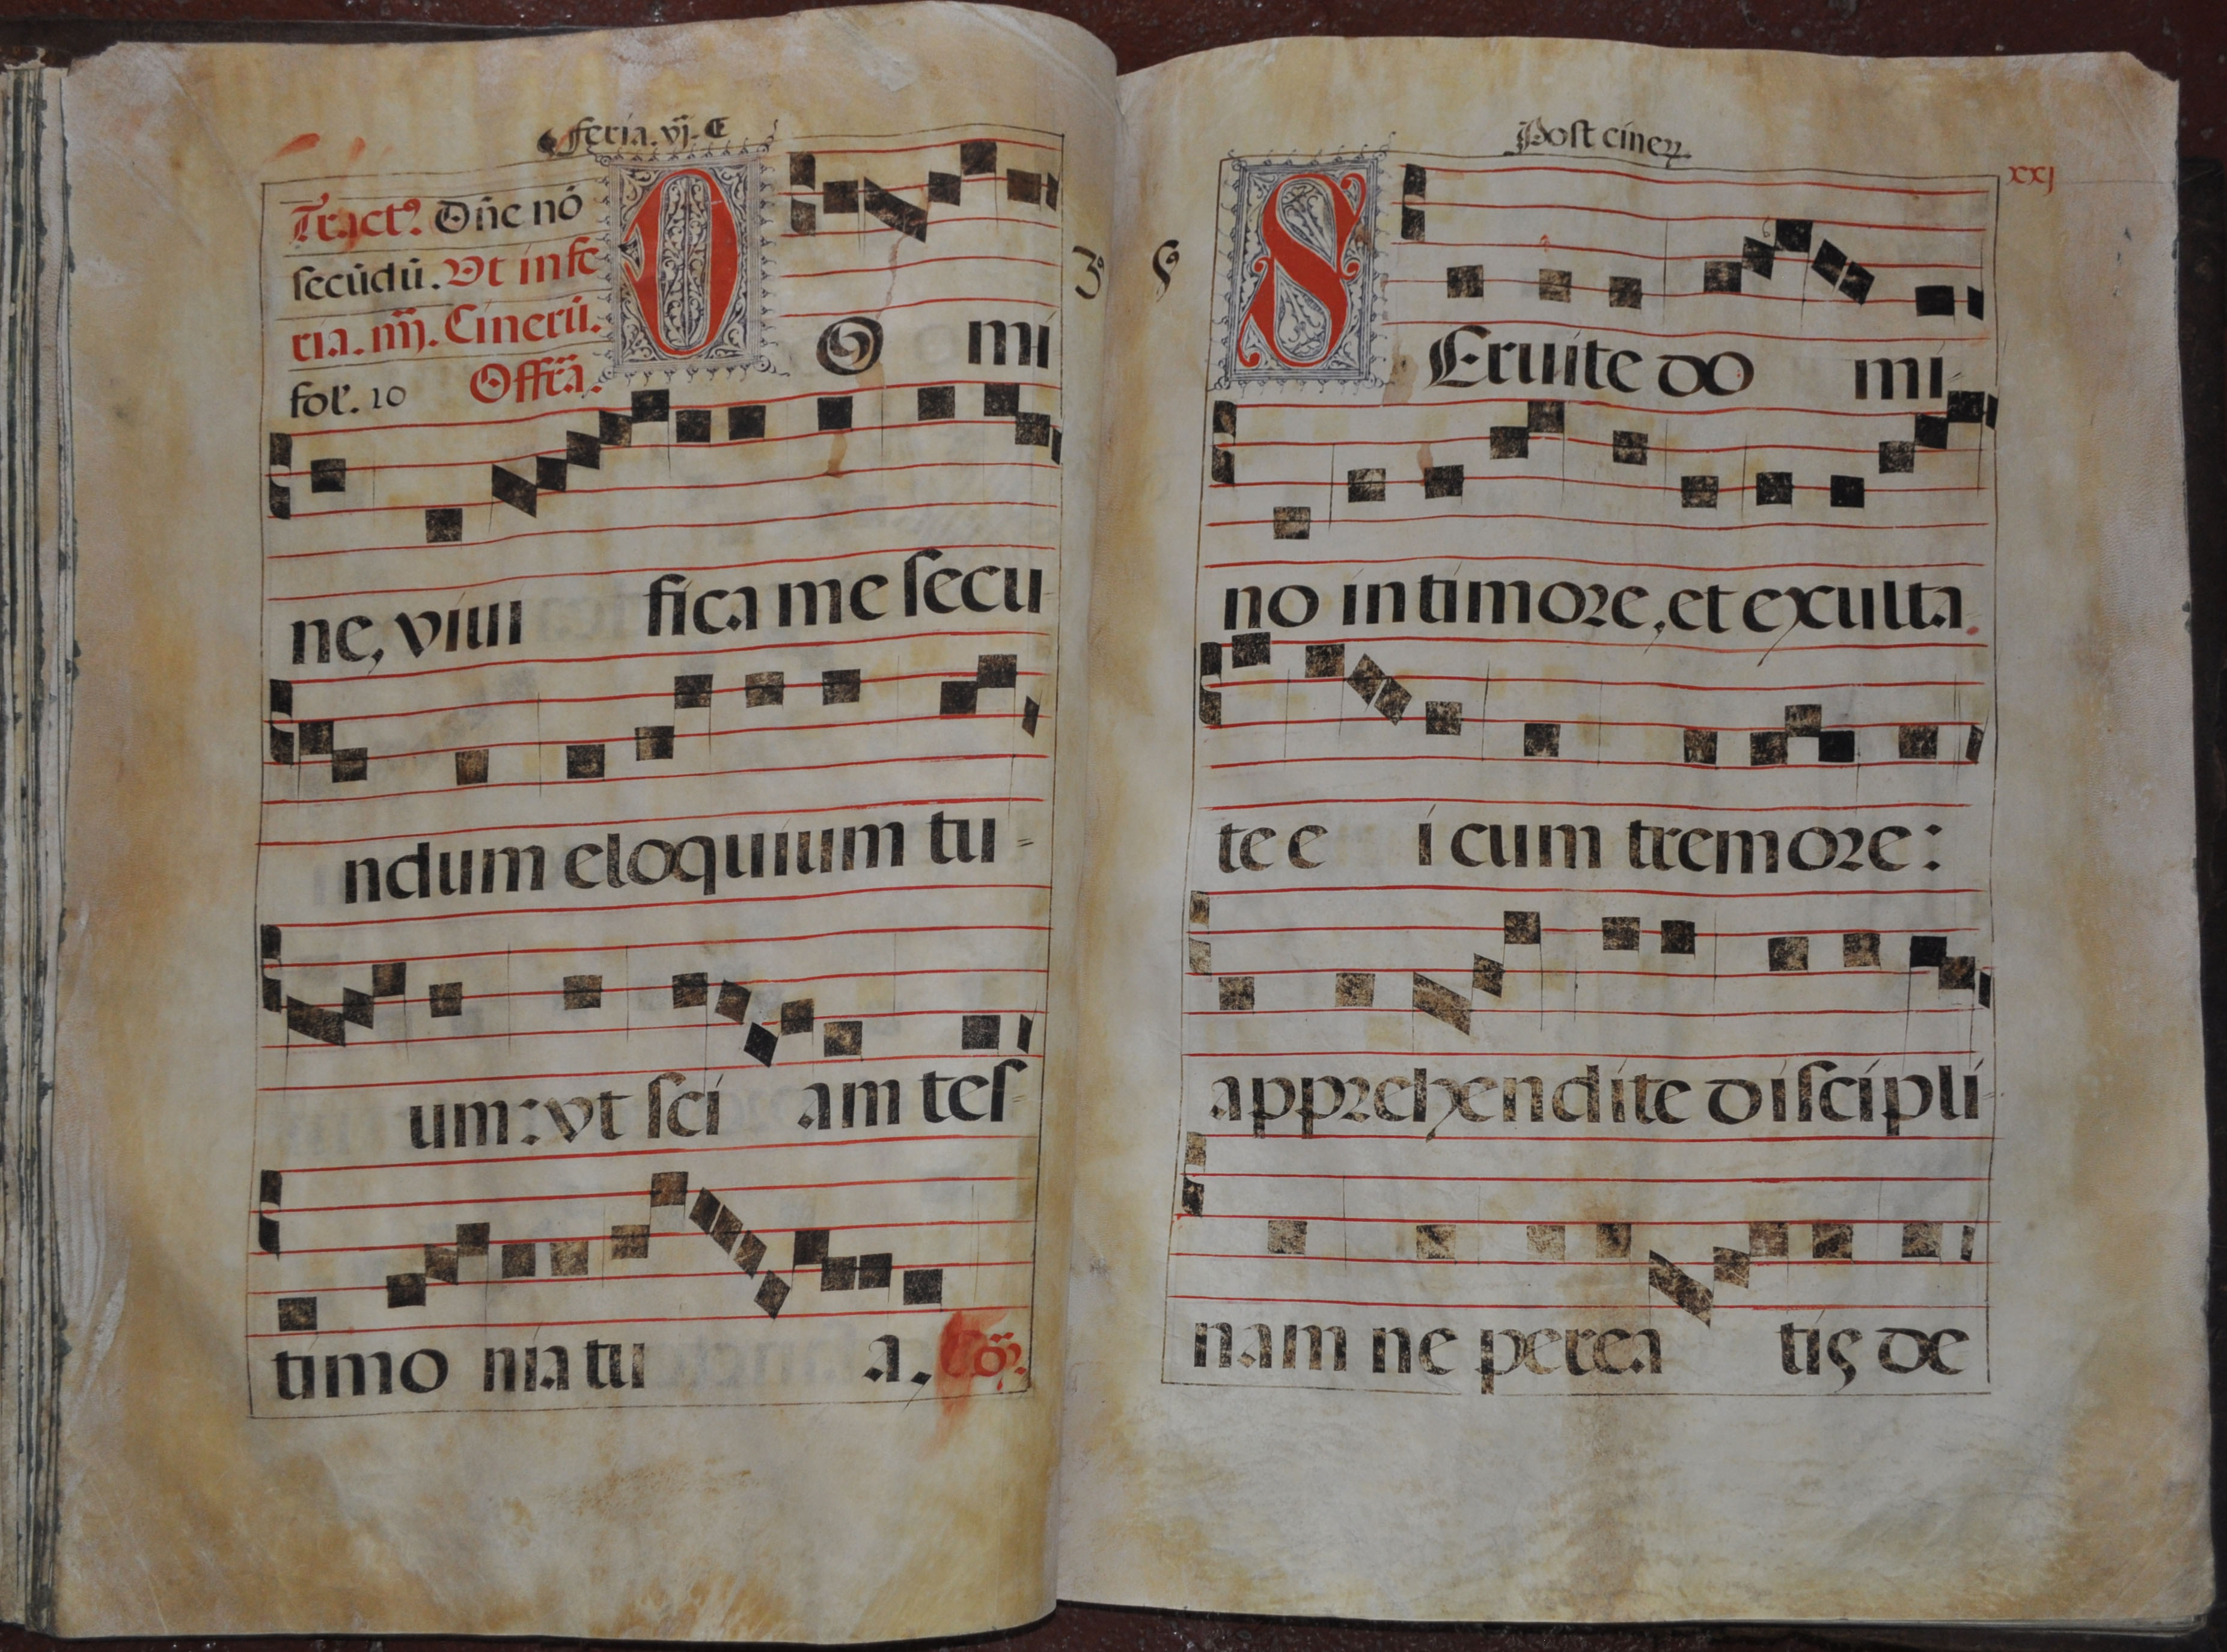 feria. vj. E
Tract⁹. Dñe nō
ſecūdū. Vt in fe
ria. iiij. Cinerū.
fol'. 10 Offr̄a.
DO mi
ne, viui fica me ſecu
ndum eloquium tu
um: vt ſci am teſ
timo nia tu a. Cõ.
Poſt cineꝝ.
xxj
SEruite do mi
no in timore, et exulta
te e i cum tremore:
apprehendite diſcipli
nam ne perea tis de